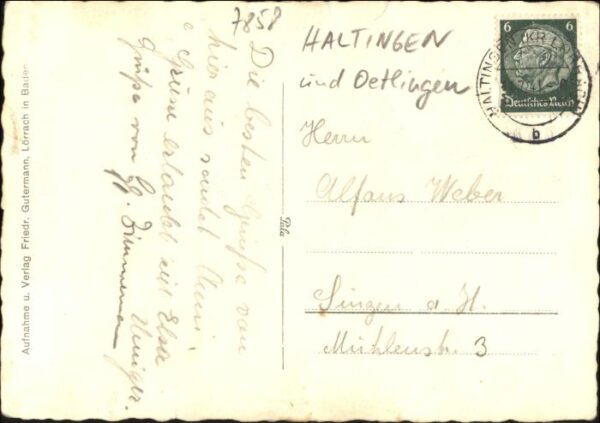 7858
HALTINGEN
und Oetlingen
6 6
Deutsches Reich
HALTINGEN (KR LÖRRACH)
b
Die besten Grüße von
hier aus sendet
Grüße erlaubt sich Elsa
Grüße von Zimmermann
Herrn
Alfons Weber
Singen a. H.
Mühlenstr. 3
Pala
Aufnahme u. Verlag Friedr. Gutermann, Lörrach in Baden